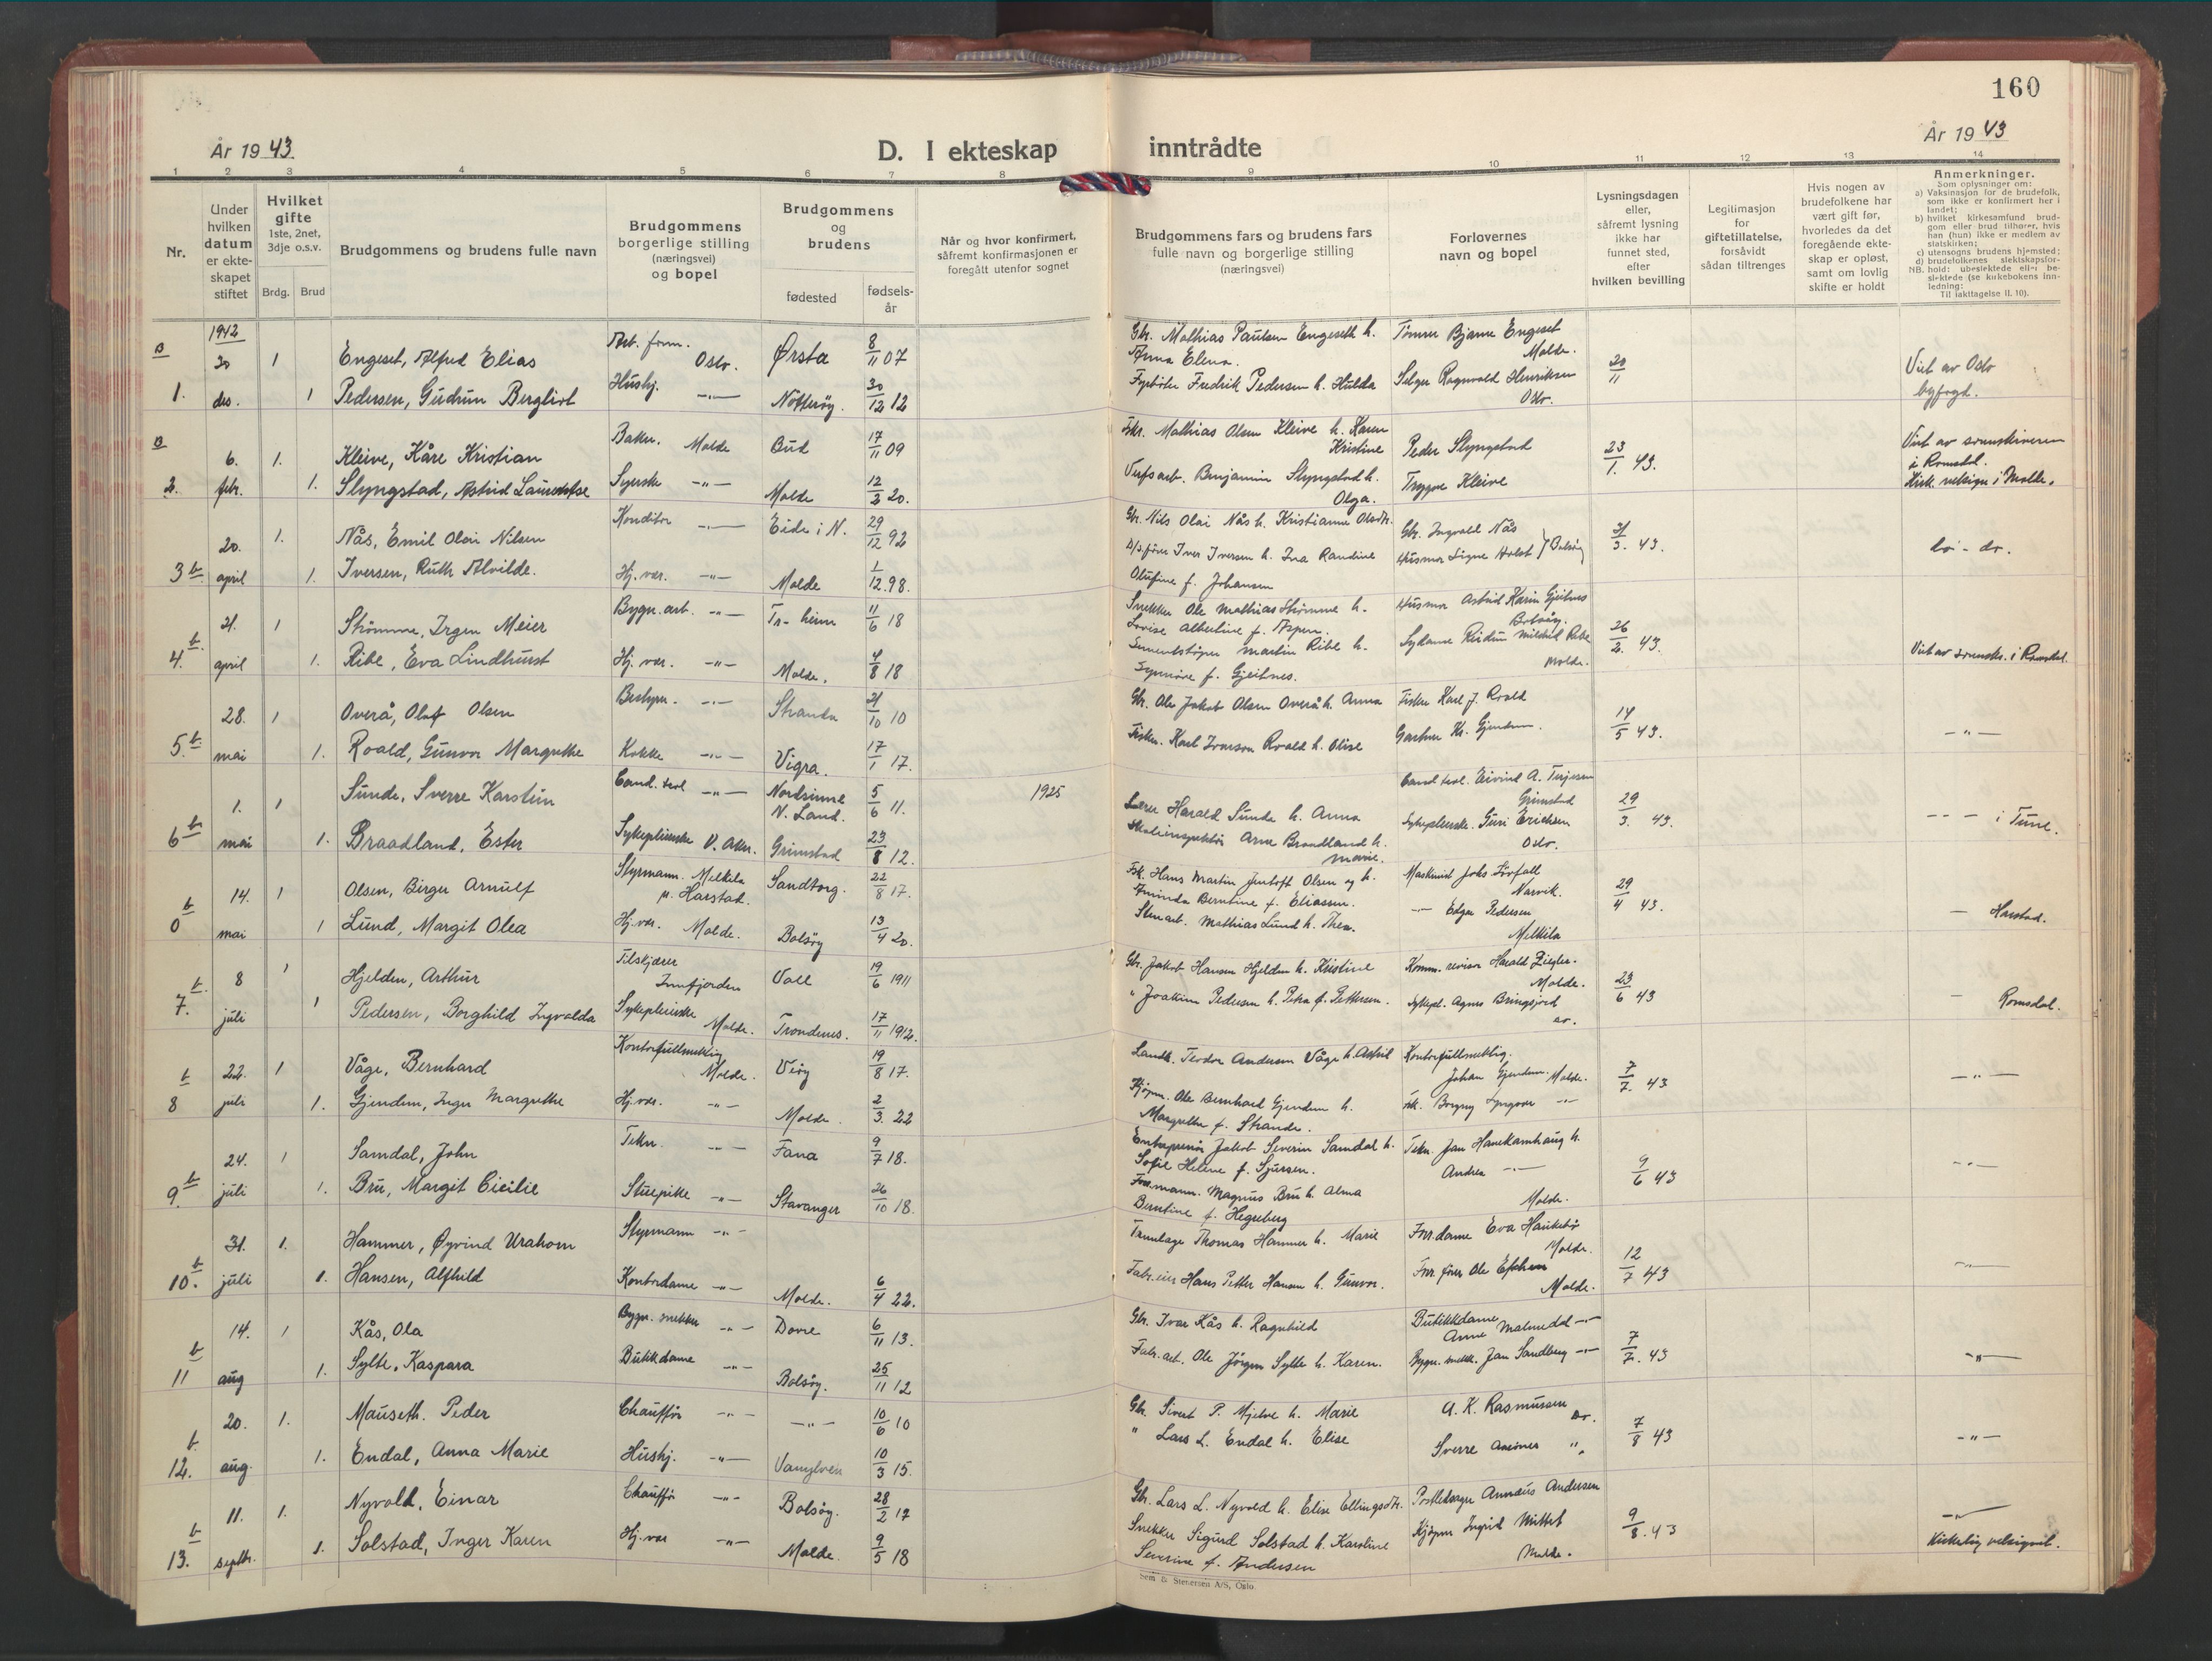 160
År 1943.
D. I ekteskap inntrådte
År 1943
1 2 3 4 5 6 7 8 9 10 11 12 13 14
Nr.
Under hvilken datum er ekteskapet stiftet
Hvilket gifte 1ste, 2net, 3dje o.s.v.
Brdg. Brud
Brudgommens og brudens fulle navn
Brudgommens borgerlige stilling (næringsvei) og bopel
Brudgommens og brudens
fødested
fødsels-år
Når og hvor konfirmert, såfremt konfirmasjonen er foregått utenfor sognet
Brudgommens fars og brudens fars fulle navn og borgerlige stilling (næringsvei)
Forlovernes navn og bopel
Lysningsdagen eller, såfremt lysning ikke har funnet sted, efter hvilken bevilling
Legitimasjon for giftetillatelse, forsåvidt sådan tiltrenges
Hvis nogen av brudefolkene har vært gift før, hvorledes da det foregående ekteskap er opløst, samt om lovlig skifte er holdt
Anmerkninger.
Som oplysninger om:
a) Vaksinasjon for de brudefolk, som ikke er konfirmert her i landet;
b) hvilket kirkesamfund brudgom eller brud tilhører, hvis han (hun) ikke er medlem av statskirken;
c) utensogns brudens hjemsted;
d) brudefolkenes slektskapsforhold: ubeslektede eller beslektede (se kirkebokens innledning:
NB.
Til iakttagelse II. 10).
1942
30 1 Engeset, Alfred Elias Oslo. Ørsta 8/11 07 Gbr. Mathias Paulsen Engeseth h. Anna Elena. Bjarne Engeset Molde. 20/11 Viet av Oslo byfogd.
1. des. 1 Pedersen, Gudrun Bergliot Hushj. -"- Nøtterøy. 30/12 12 Fyrbøter Fredrik Pedersen h. Hulda Selger Ragnvald Henriksen Oslo.
6. 1. Kleive, Kåre Kristian Baker. Molde Bud 17/11 09 Mathias Olsen Kleive h. Karen Kristine Peder Slyngstad 23/1. 43. Viet av sorenskriveren i Romsdal.
2. febr. 1. Slyngstad, Astrid Syerske -"- Molde 12/3 20. Benjamin Slyngstad h. Olga. Trygve Kleive Kirk. velsign. i Molde.
20. 1. Nås, Emil Olai Nilsen Konditor -"- Eide i N. 29/12 92 Gbr. Nils Olai Nås h. Kristianne Olsdtr. Gbr. Ingvald Nås 31/3. 43. do.
3 b april 1. Iversen, Ruth Alvilde. Hj. vær. -"- Molde 1/12. 98. Iver Iversen h. Ina Randine Olufine f. Johansen Husmor Signe Holst Bolsøy
21. 1 Strømme, Jrgen Meier Bygn. arb. -"- Tr-heim 11/6 18 Snekker Ole Mathias Strømme h. Lovise Albertine f. Aspen. Husmor Astrid Karin Gjeitnes Bolsøy. 26/2. 43.
4. b april 1. Ribe, Eva Lindhurst Hj. vær. -"- Molde. 4/8 18 Sementstøper Martin Ribe h. f. Gjeitnes. Sydame Reidun Mildrid Ribe Molde. Viet av sorenskr. i Romsdal.
28. 1 Overå, Olaf Olsen Bestyrer. -"- Stranda 21/10 10 Gbr. Ole Jakob Olsen Overå h. Anna Fisker Karl J. Roald 14/5 43.
5 b mai 1. Roald, Gunvor Margrethe Kokke -"- Vigra. 17/1 17. Fisker. Karl Ivarson Roald h. Olise Gartner Kr. Gjendem. -"-
1. 1 Sunde, Sverre Karsten Cand. teol -"- Nordsinne N. Land. 5/6 11. 1925 Lærer Harald Sunde h. Anna Cand teol. Eivind A. Terjesen Grimstad 29/3. 43. i Tune.
6 b mai 1. Braadland, Ester Sykepleierske V. Aker. Grimstad 23/8 12. Skoleinspektør Arne Braadland h. Marie. Sykepleierske. Guri Erichsen Oslo.
14. 1 Olsen, Birger Arnulf Styrmann. Melkila p. Harstad. Sandtorg. 22/8 17. Hans Martin Jentoft Olsen og h. Aminda Berntine f. Eliassen. Maskinist Johs Narvik. 29/4 43.
0 b mai 1 Lund, Margit Olea Hj. vær. Molde. Bolsøy 13/4 20. Stenarb. Mathias Lund h. Thea. -"- Edgar Pedersen Melkila - Harstad.
8 1 Hjelden, Arthur Filskjærer Innfjorden Voll 19/6 1911 Gbr. Jakob Hansen Hjelden h. Kristine Komm. revisor Harald Ziegler. Molde. 23/6 43
7. b. juli 1 Pedersen, Borghild Ingvalda Sykepleierske Molde. Trondenes. 17/11 1912. " Joakim Pedersen h. Petra f. Pettersen. Sykepl. Agnes Bringsjord - Romsdal.
22. 1 Våge, Bernhard Kontorfullmektig Molde. Viøy 19/8 17. Landh. Teodor Andersen Våge h. Astrid Kontorfullmektig. Johan Gjendem. Molde. 7/7. 43
8 b juli 1. Gjendem, Inger Margrethe Hj. vær. -"- Molde. 2/3. 22 Kjøpm. Ole Bernhard Gjendem h. Margrethe f. Strande. frk. Borgny -"- -"-
24. 1 Samdal, John Tekn. -"- Fana 9/7 18. Entreprenør Jakob Severin Samdal h. Sofie Helene f. Sjursen. Tekn. Jan Hanekamhaug h. Andrea -"- 9/6 43
9. b juli 1. Bru, Margit Cicilie Stuepike -"- Stavanger 26/10 18. Magnus Bru h. Alma Berntine f. Hegreberg Molde. -"-
31. 1. Hammer, Øyvind Styrmann -"- Thomas Hammer h. Marie Forr.dame Eva Haukebø Molde. 12/7 43
10. b juli 1. Hansen, Alfhild Kontordame -"- Molde. 6/4 22. Fabr.eier Hans Petter Hansen h. Gunvor. Forr. fører Ole Molde. -"-
14. 1 Kås, Ola Bygn. snekker -"- Dovre 6/11 13. Gbr. Ivar Kås h. Ragnhild Butikkdame Anne Malmedal -"- 7/7. 43
11 b aug 1. Sylte, Kaspara Butikkdame -"- Bolsøy. 25/11 12 Fabr.arb. Ole Jørgen Sylte h. Karen. Bygn. snekk. Jan Sandberg -"- -"-
20. 1. Mauseth. Peder Chauffør -"- -"- 10/6 10 Gbr. Sivert P. Mjelve h. Marie A. K. Rasmussen do. 7/8 43
12. b aug. 1. Endal, Anna Marie Hushj. -"- Vanylven 10/3 15. " Lars L. Endal h. Elise Sverre " -"-
11. 1. Nyvold, Einar Chauffør -"- Bolsøy. 28/2 17 Gbr. Lars L. Nyvold h. Elise Ellingsdtr. Annæus Andersen 9/8. 43
13. b septbr. 1. Solstad, Inger Karen Hj. vær -"- Molde. 9/5 18 Snekker Sigurd Solstad h. Karoline Severine f. Andersen Kjøpm Ingrid Mittet Molde. Kirkelig velsignet.
Sem & Stenersen A/S, Oslo.